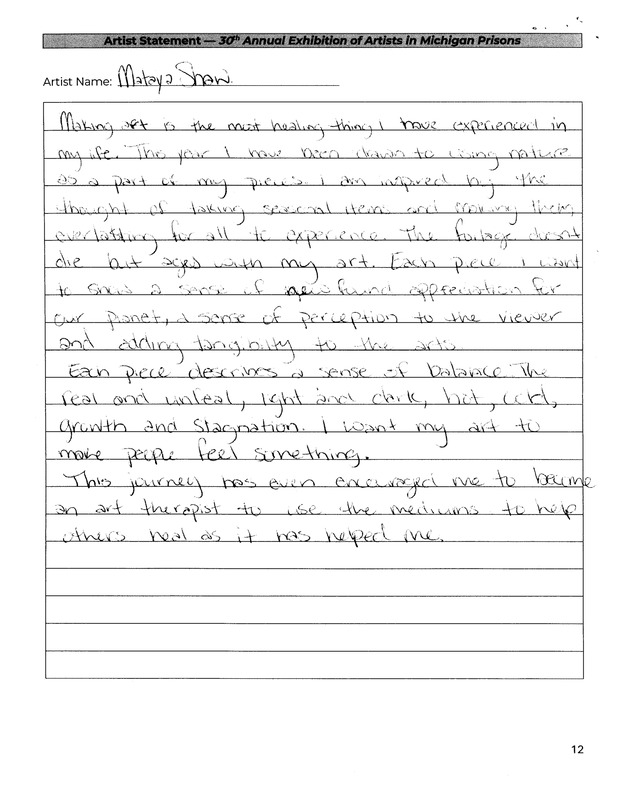 Artist Statement — 30th Annual Exhibition of Artists in Michigan Prisons
Artist Name: Mataya Shaw
Making art is the most healing thing I have experienced in
my life. This year I have been drawn to using nature
as a part of my pieces. I am inspired by the
thought of taking seasonal items and making them
everlasting for all to experience. The foilage doesnt
die but ages with my art. Each piece I want
to show a sense of new found appreciation for
our planet, a sense of perception to the viewer
and adding tanginity to the arts.
Each piece describes a sense of balance. The
real and unreal, light and dark, hot, cold,
growth and stagnation. I want my art to
make people feel something.
This journey has even encouraged me to become
an art therapist to use the mediums to help
others heal as it has helped me.
12